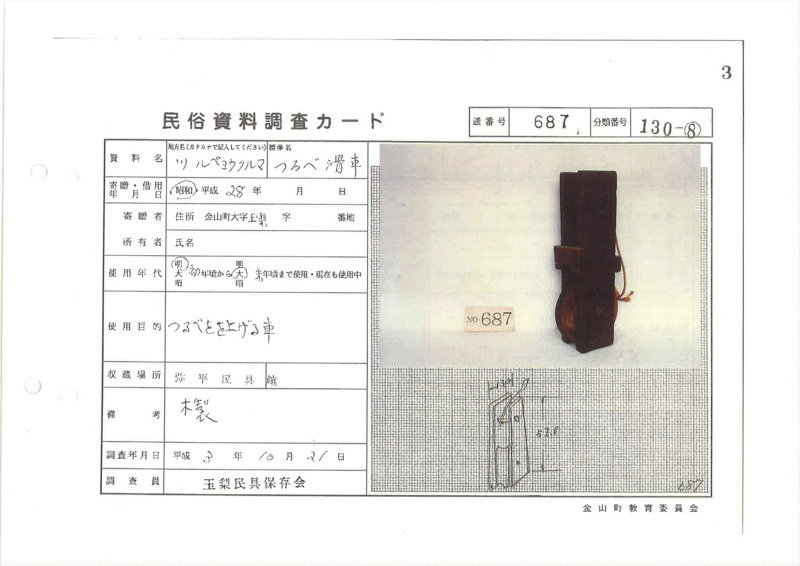 3
民俗資料調査カード
遂番号 687 分類番号 130-⑧
資料名 地方名(カタカナで記入してください) 標準名
ツルベヨウクルマ つるべ滑車
寄贈・借用年月日 昭和・平成 28年 月 日
寄贈者 住所 金山町大字玉梨 字 番地
所有者 氏名
明 明
使用年代 大 初年頃から 大 末年頃まで使用・現在も使用中
昭 昭
使用目的 つるべをを上げる車
収蔵場所 弥平民具館
備考 木製
調査年月日 平成 年 10月 21日
調査員 玉梨民具保存会
NO.687
687
金山町教育委員会